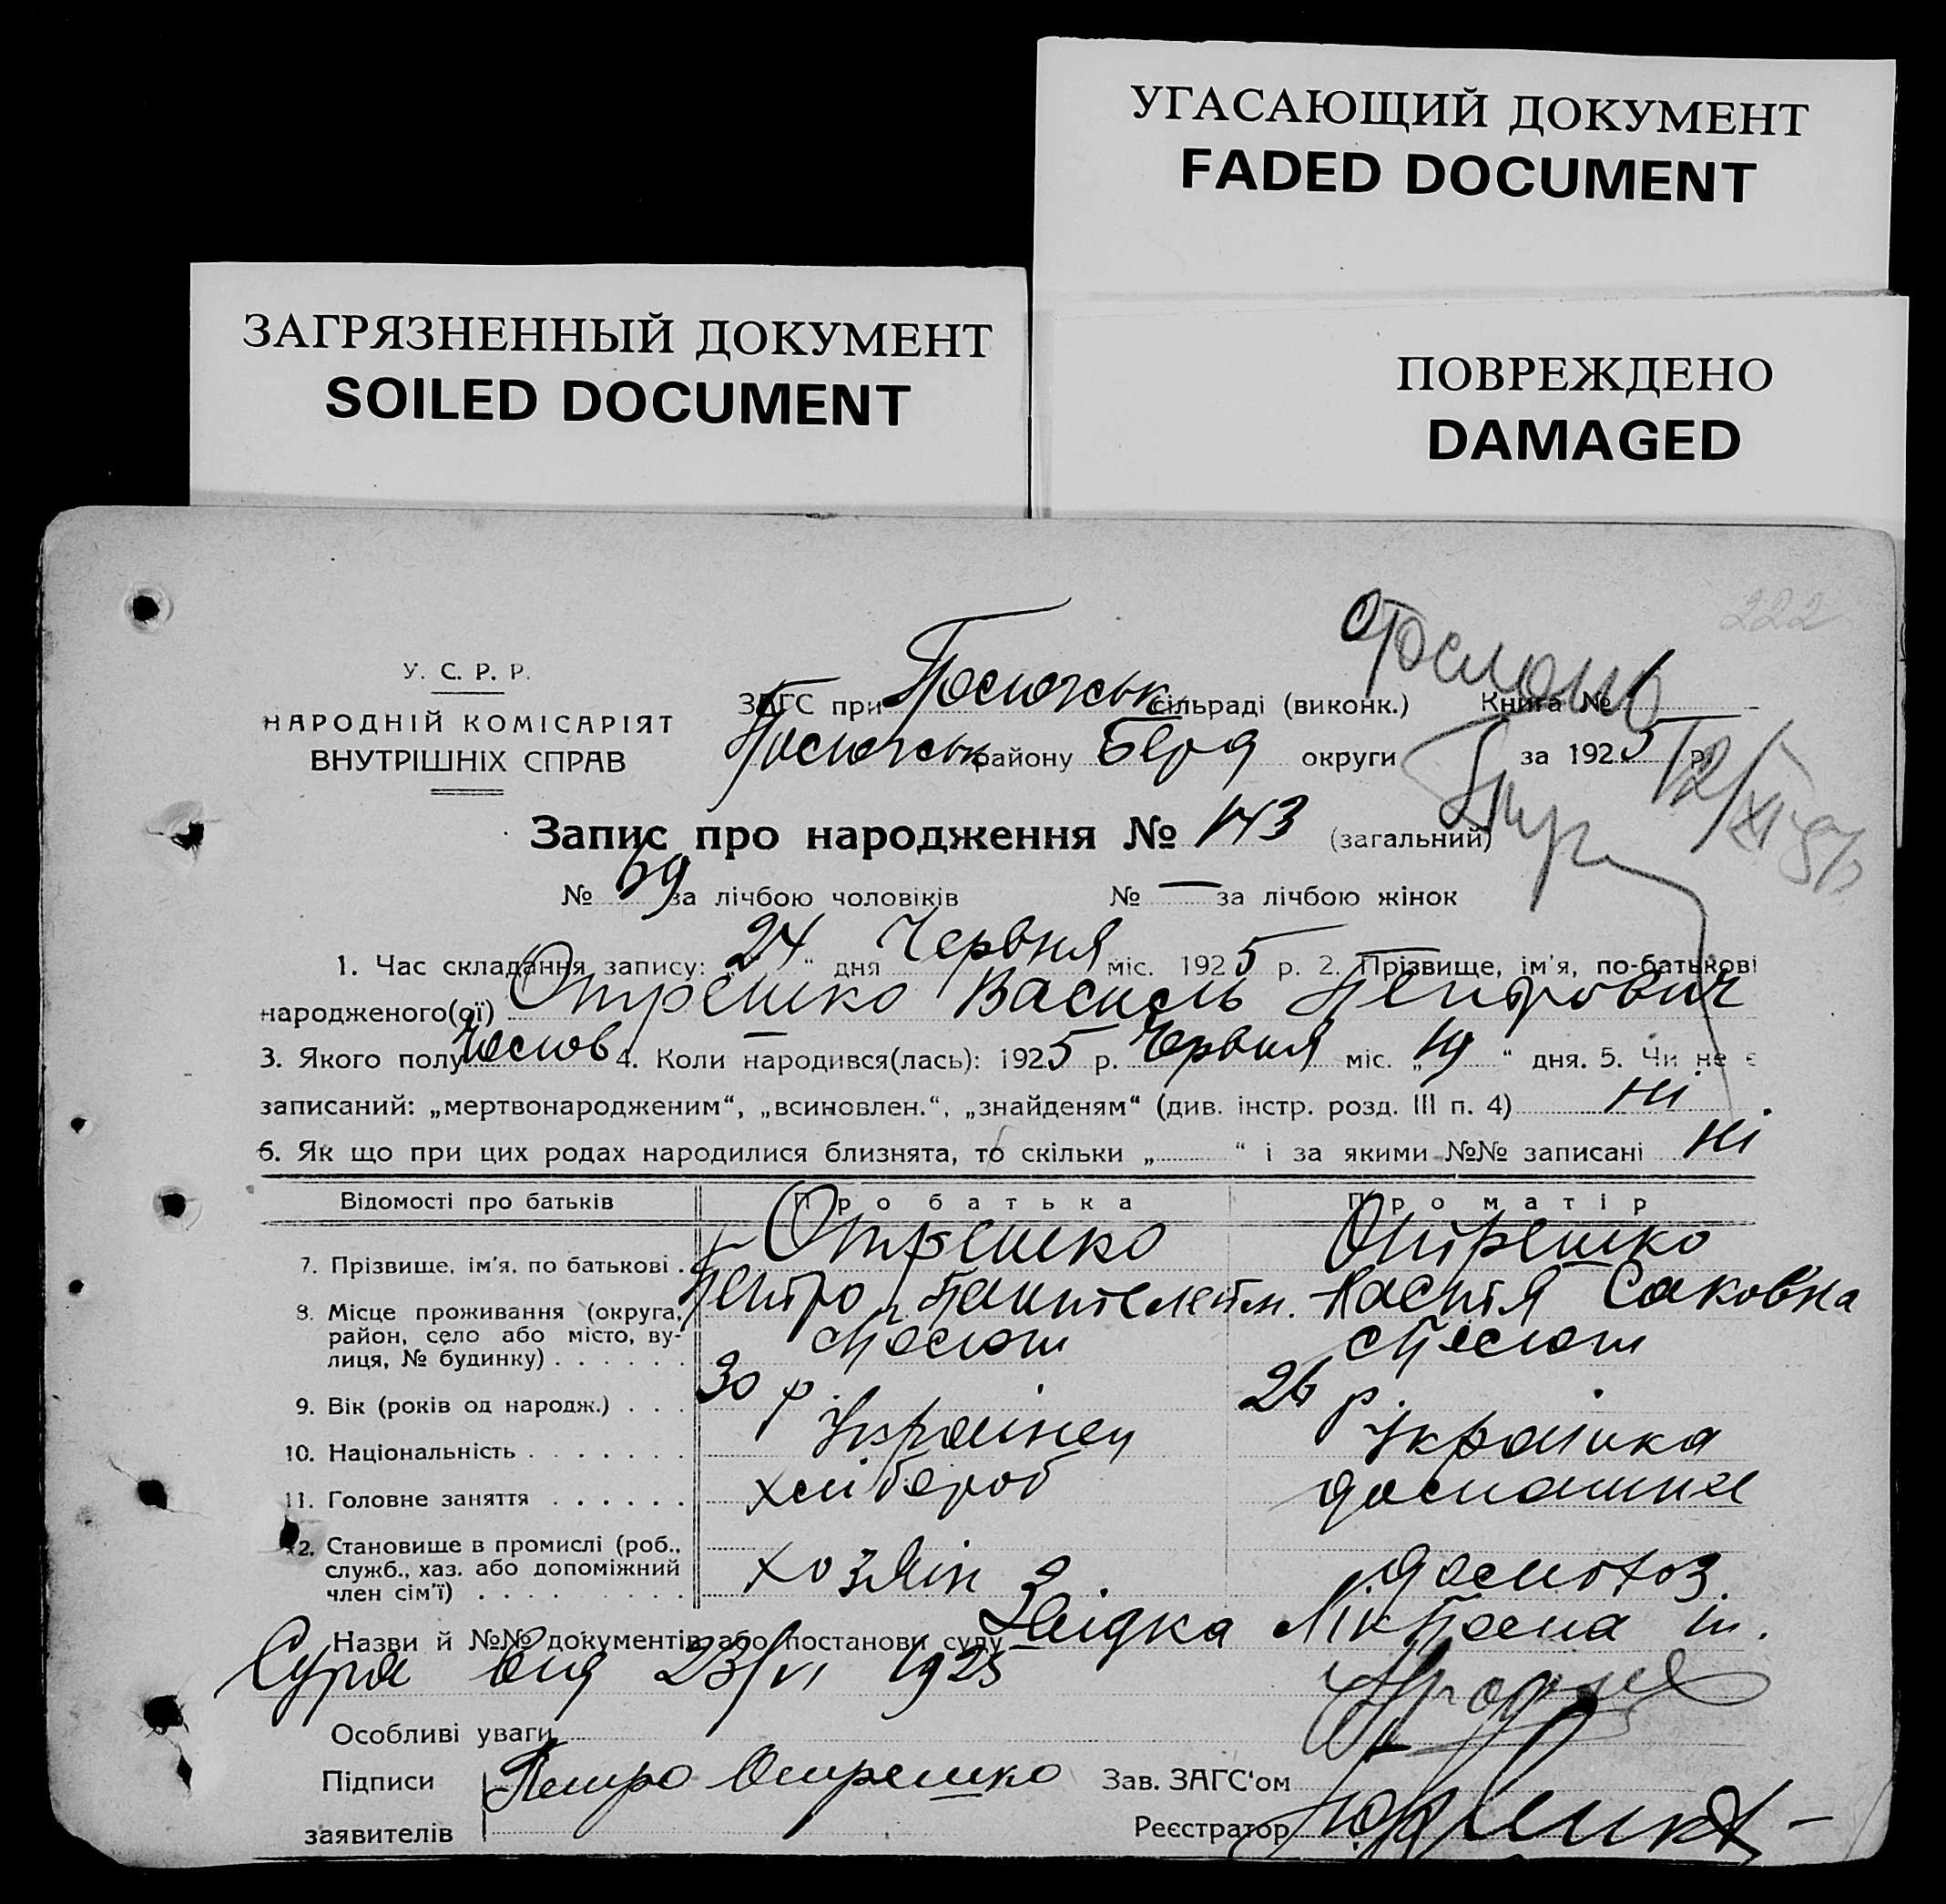 УГАСАЮЩИЙ ДОКУМЕНТ
FADED DOCUMENT
ЗАГРЯЗНЕННЫЙ ДОКУМЕНТ
SOILED DOCUMENT
ПОВРЕЖДЕНО
DAMAGED
222
У. С. Р. Р.
НАРОДНІЙ КОМІСАРІЯТ
ВНУТРІШНІХ СПРАВ
ЗАГС при сільраді (виконк.) Книга № 1
району Берд округи за 1925 р.
Запис про народження № 143 (загальний)
№ 69 за лічбою чоловіків № — за лічбою жінок
1. Час складання запису: „24“ дня Червня міс. 1925 р. 2. Прізвище, ім'я, по-батькові
народженого(ої) Отрешко Василь Петрович
3. Якого полу 4. Коли народився(лась): 1925 р. Червня міс. „19“ дня. 5. Чи не є
записаний: „мертвонародженим“, „всиновлен.“, „знайденям“ (див. інстр. розд. III п. 4) Ні
6. Як що при цих родах народилися близнята, то скільки „ “ і за якими №№ записані Ні
Відомості про батьків Про батька Про матір
7. Прізвище, ім'я, по батькові . Отрешко Петро Отрешко Настя Саковна
8. Місце проживання (округа, район, село або місто, вулиця, № будинку) . . . . . .
9. Вік (років од народж.) . . . 30 р. 26 р.
10. Національність . . . . . . . Українец Українка
11. Головне заняття . . . . . . хлібороб домашнє
12. Становище в промислі (роб., служб., хаз. або допоміжний член сім'ї) . . . . . . . . хозяін домохоз.
Назви й №№ документів або постанови суду
від 23/VI 1925
Особливі уваги
Підписи Петро Отрешко Зав. ЗАГС'ом
заявителів Реєстратор